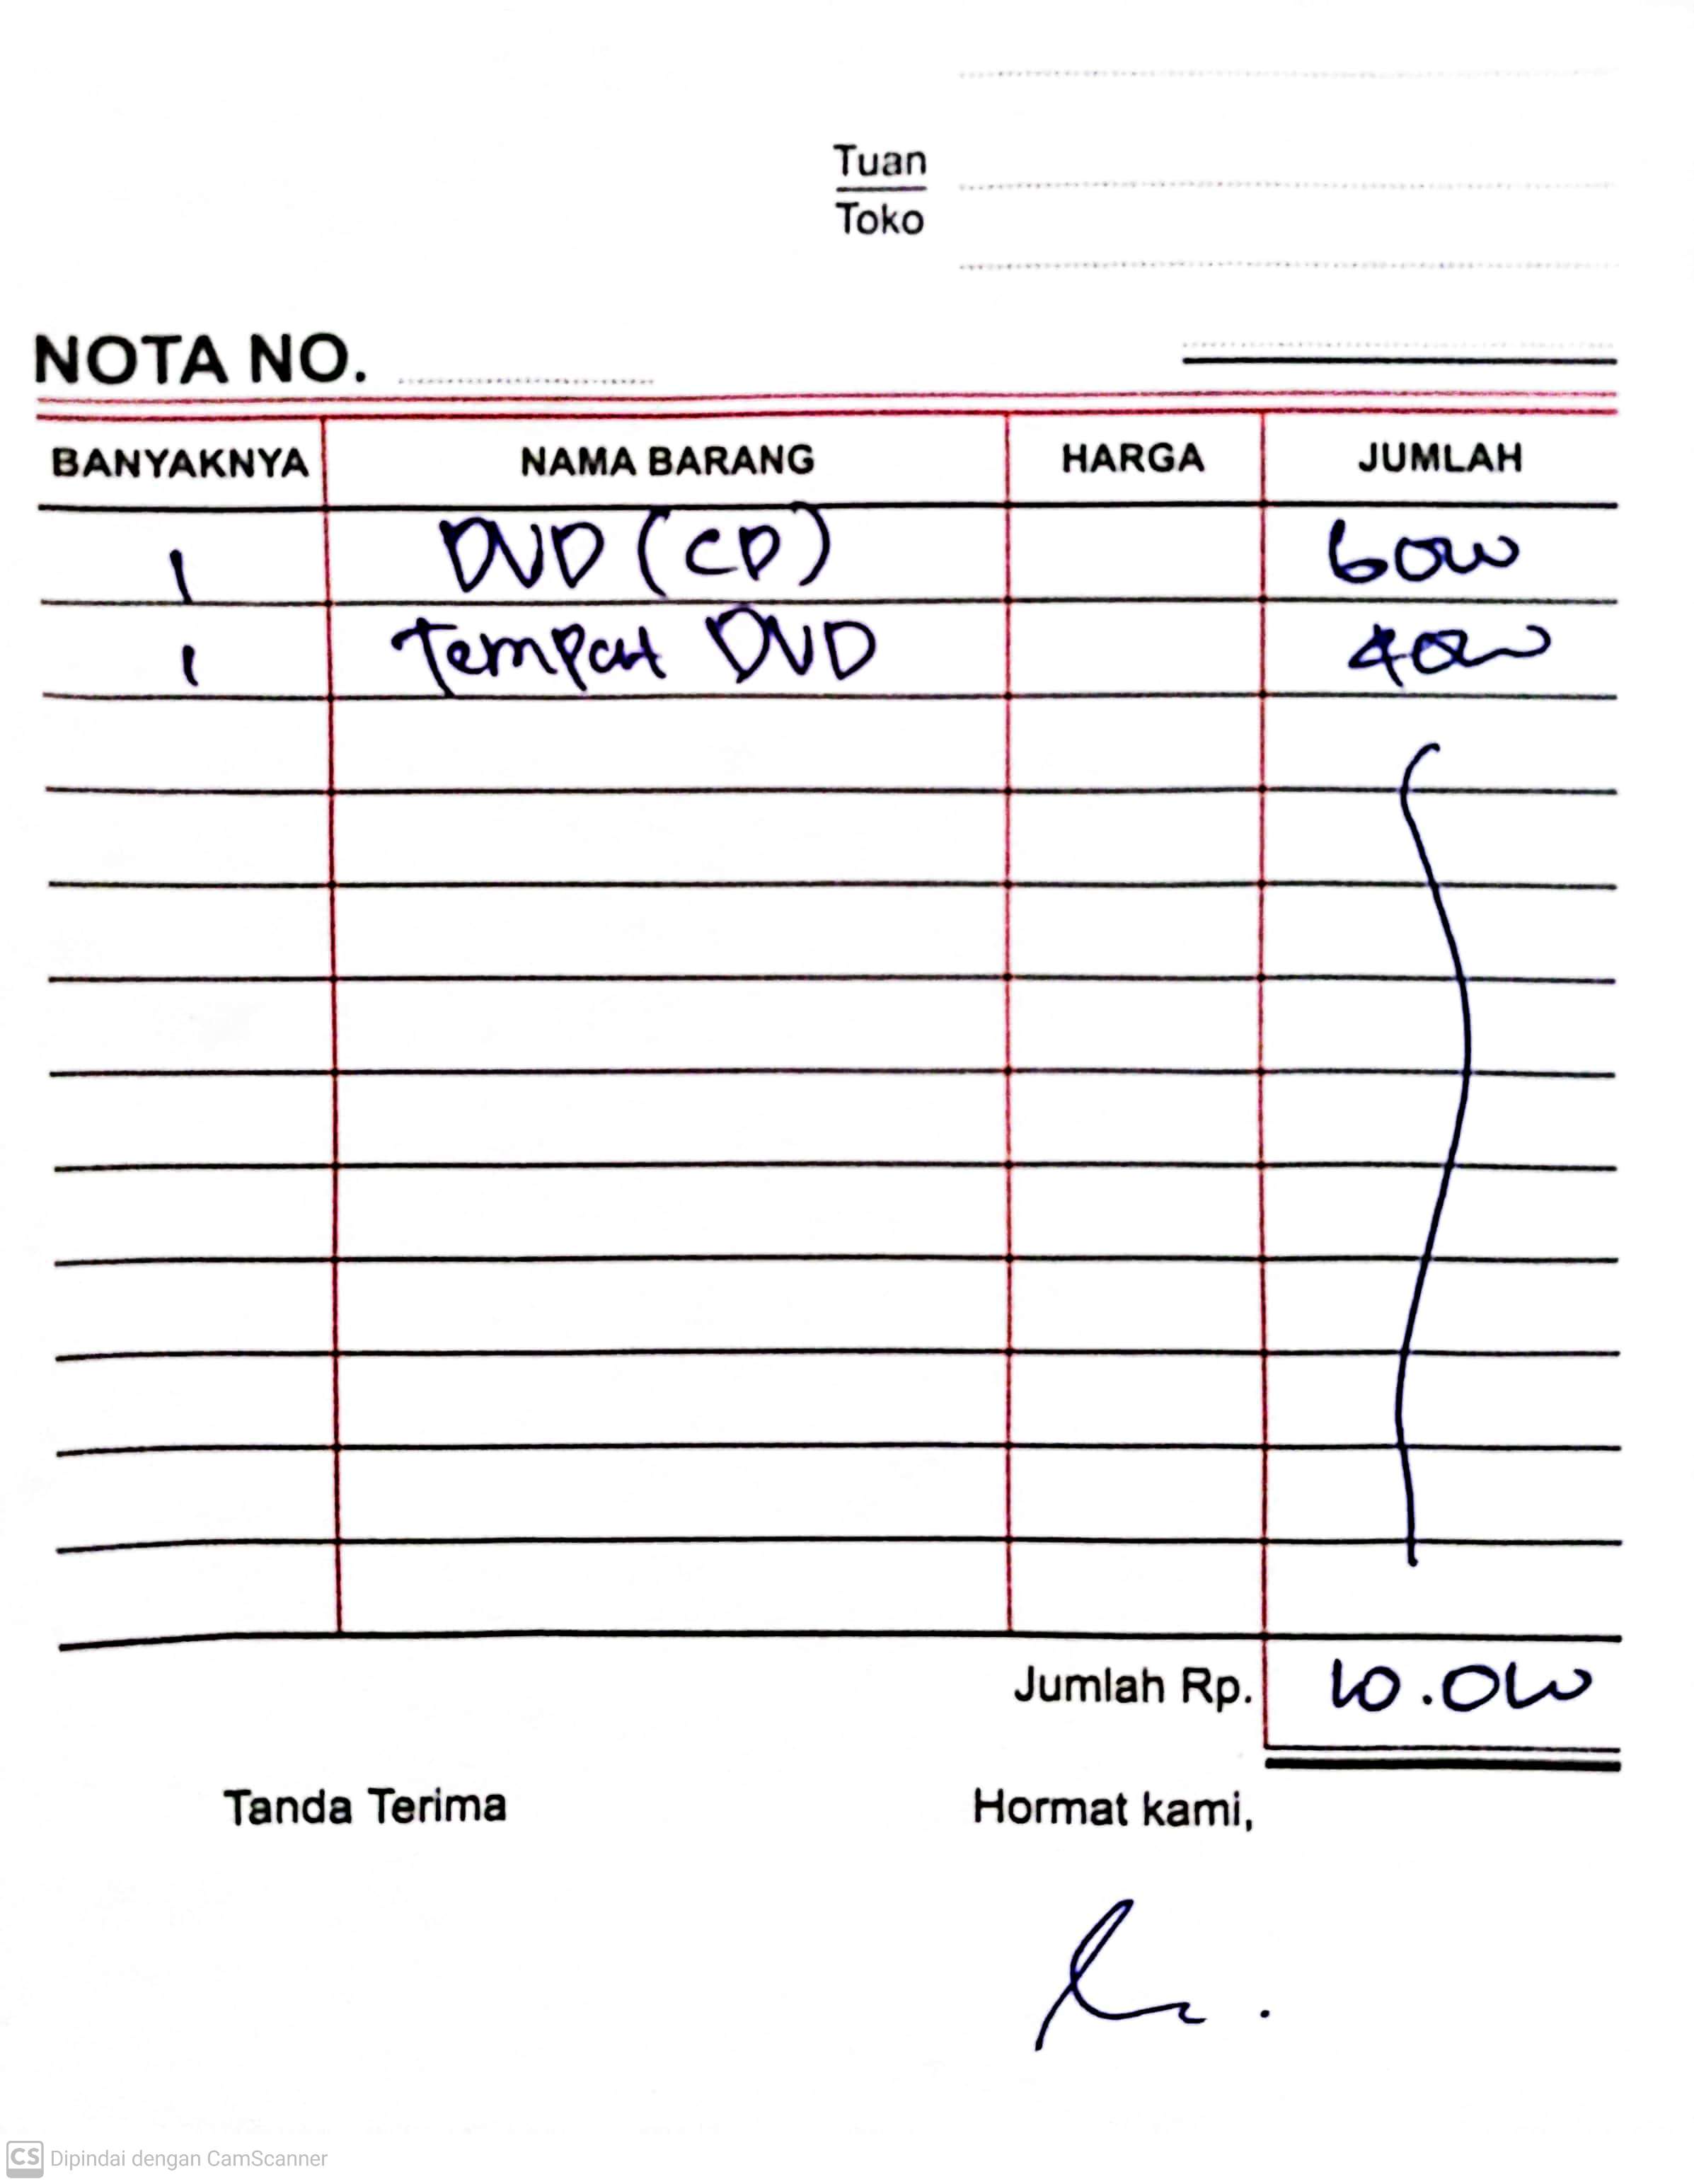 Tuan
Toko
NOTA NO.
BANYAKNYA NAMA BARANG HARGA JUMLAH
1 DVD (CD) 6000
1 Tempat DVD 4000
Jumlah Rp. 10.000
Tanda Terima Hormat kami,
CS Dipindai dengan CamScanner